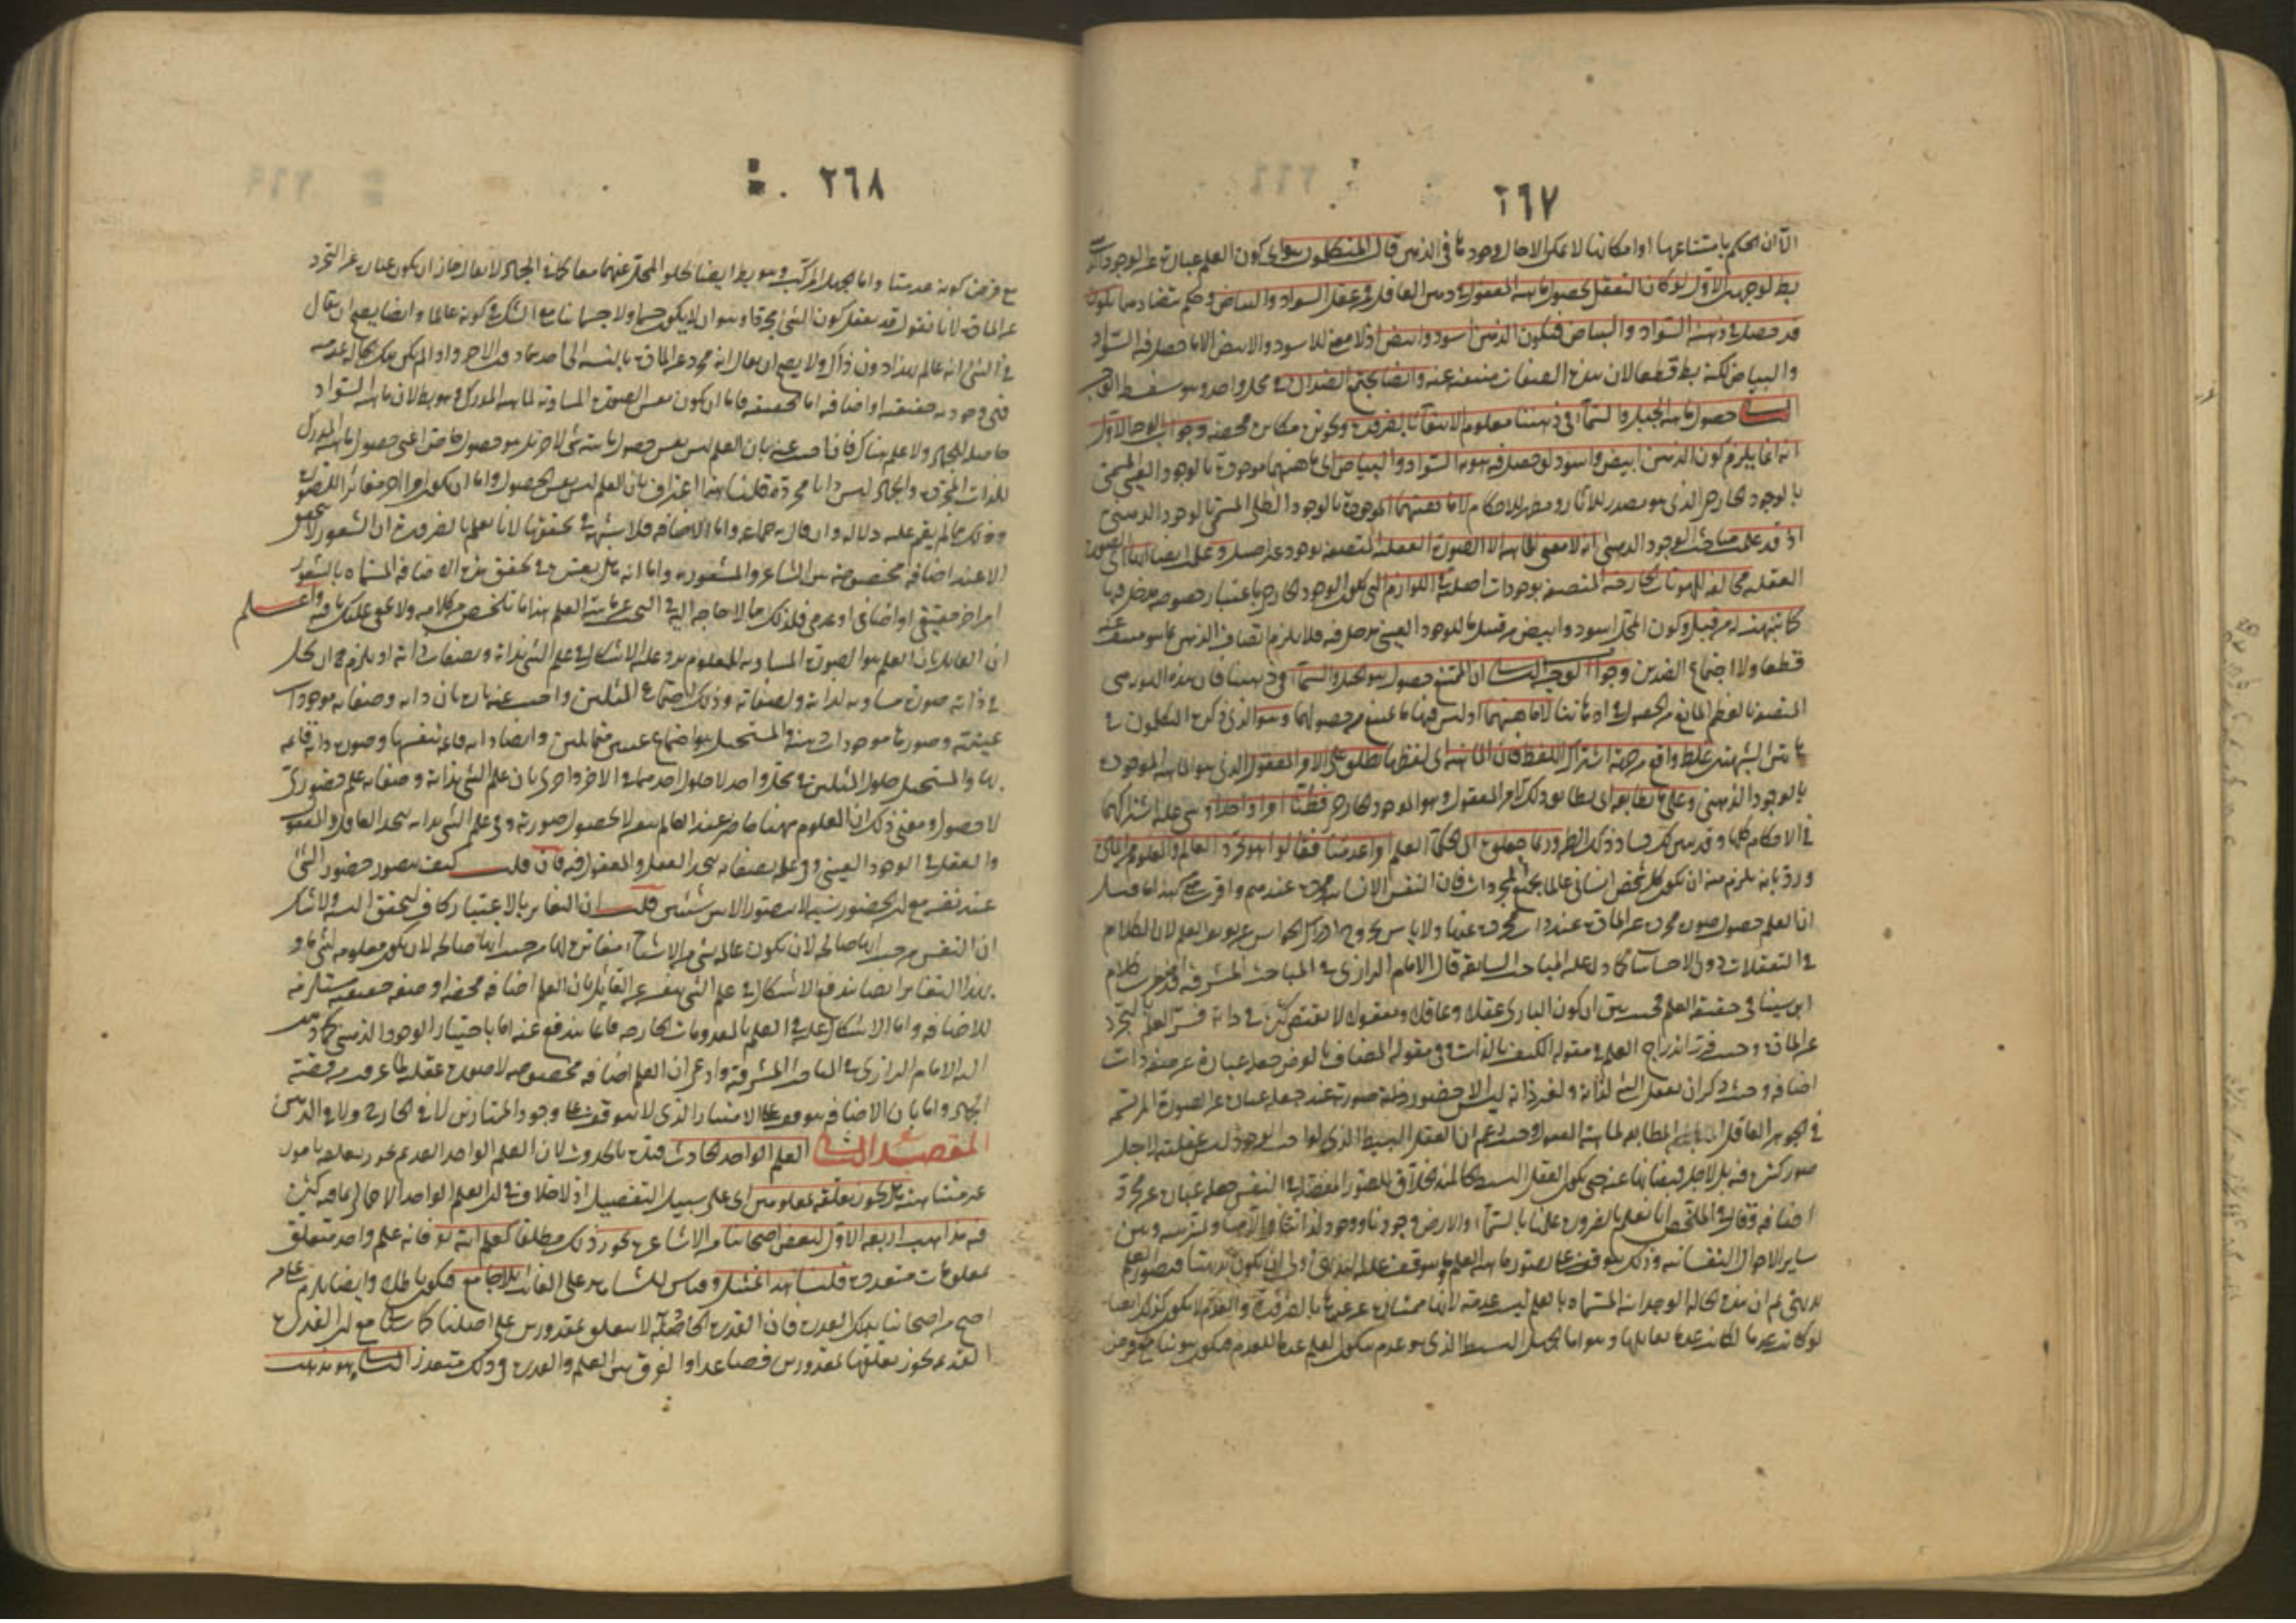 ٢٦٧
الا ان الحكم بامتناعها او امكانها لا يمكن الا حال وجودها في الذهن قال المتكلمون هو اى كون العلم عبارة عن الوجود الذهنى
بط لوجهين الاول لو كان التعقل بحصول ماهية المعقول في ذهن العاقل فمن عقل السواد والبياض وحكم بتضادهما يكون
قد حصل في ذهنه السواد والبياض فيكون الذهن اسود وابيض اذ لا معنى للاسود والابيض الا ما حصل فيه السواد
والبياض لكنه بط قطعا لان هذه الصفات منتفية عنه وايضا يجتمع الضدان في محل واحد وهو سفسطة
الثانى حصول ماهية الجبل والسماء في ذهننا معلوم الانتفاء بالضرورة وتجويزه مكابرة محضة وجواب الوجه الاول
انه انما يلزم كون الذهن ابيض واسود لو حصل فيه هوية السواد والبياض اى ماهيتهما موجودة بالوجود العينى المسمى
بالوجود الخارجى الذى هو مصدر للآثار ومظهر للاحكام لا ماهيتهما الموجودة بالوجود الظلى المسمى بالوجود الذهنى
اذ قد علمت في مباحث الوجود الذهنى انه لا معنى للماهية الا الصورة العقلية المتصفة بوجود غير اصيل وعلمت ايضا انها اى الصورة
العقلية مخالفة للهويات الخارجية المتصفة بوجودات اصلية في اللوازم التى يكون للوجود الخارجى باعتبار خصوصه مدخل فيها
كما نبهت له من قبل وكون المحل اسود وابيض من قبيل ما للوجود العينى مدخل فيه فلا يلزم اتصاف الذهن بما هو منتف عنه
قطعا ولا اجتماع الضدين وجواب الوجه الثانى ان الممتنع حصول هوية الجبل والسماء في ذهننا فان هذه الهوية هى
المتصفة بالعظم المانع من الحصول في اذهاننا لا ماهيتهما اذ ليس فيها ما يمنع من حصولها وهو الذى ذكره المتكلمون في
هاتين الشبهتين غلط واقع من جهة اشتراك اللفظ فان الماهية اى لفظها تطلق على الامر المعقول الذى هو الماهية الموجودة
بالوجود الذهنى وعلى ما يطابقه اى يطابق ذلك الامر المعقول وهو الموجود الخارجى فظنا امرا واحدا وبنى عليه اشتراكهما
في الاحكام كلها وقد تبين لك فساد ذلك الظن وربما جعلوه اى الحكماء العلم امرا عدميا فقالوا هو تجرد العالم والمعلوم عن المادة
ورد بانه يلزم منه ان يكون كل شخص انسانى عالما بجميع المجردات فان النفس الانسانية مجردة عندهم
ان العلم حصول صورة مجردة عن المادة عند ذات مجردة عنها ولا بأس بخروج ادراك الحواس عن تعريف العلم لان الكلام
في التعقلات دون الاحساسات كما دل عليه المباحث السابقة قال الامام الرازى في المباحث المشرقية قد اضطرب كلام
ابن سينا في حقيقة العلم فحيث بين ان كون البارى عقلا وعاقلا ومعقولا لا يقتضى كثرة في ذاته فسر العلم بالتجرد
عن المادة وحيث قرر اندراج العلم في مقولة الكيف بالذات وفي مقولة المضاف بالعرض جعله عبارة عن صفة ذات
اضافة وحيث ذكر ان تعقل الشئ لذاته ولغير ذاته ليس الا حضور صورته عنده جعله عبارة عن الصورة المرتسمة
في الجوهر العاقل المطابقة لماهية المعقول وحيث زعم ان العقل البسيط الذى لواجب الوجود ليس عقليته لاجل
صور كثيرة فيه بل لاجل فيضانها عنه حتى يكون العقل البسيط كالمبدأ الخلاق للصور المفصلة في النفس جعله عبارة عن مجرد
اضافة وقال في الملخص انا نعلم بالضرورة علمنا بالسماء والارض ووجودنا ووجود لذاتنا وآلامنا والتمييز بينه وبين
ساير الاحوال النفسانية وذلك يتوقف على تصور ماهية العلم وما يتوقف عليه البديهى اولى ان يكون بديهيا فتصور العلم
بديهى ثم ان هذه الحالة الوجدانية المسماة بالعلم ليست عدمية لانها ممتازة عن غيرها بالضرورة والعدم لا يكون كذلك وايضا
لو كانت عدما لكانت عدما يقابلها وهو اما الجهل البسيط الذى هو عدم فيكون العلم عدما للعدم فيكون ثبوتيا مع فرض
٢٦٨
مع فرض كونه عدميا واما الجهل المركب وهو بط ايضا لخلو المحل عنهما معا كما في الجماد لا يقال جاز ان يكون عبارة عن التجرد
عن المادة لانا نقول قد يعقل كون الشئ مجردا وهو ان لا يكون جسما ولا جسمانيا مع الشك في كونه عالما وايضا يصح ان يقال
في الشئ انه عالم بهذا دون ذاك ولا يصح ان يقال انه مجرد عن المادة بالنسبة الى احدهما دون الآخر واذا لم يكن تلك الحالة عدمية
فهى وجودية حقيقية او اضافية اما الحقيقية فاما ان تكون نفس الصورة المساوية لماهية المدرك وهو بط لان ماهية السواد
حاصلة للجماد ولا علم هناك فان اجيب عنه بان العلم ليس نفس حصول ماهية شئ لآخر بل هو حصول خاص اعنى حصول ماهية المدرك
للذات المجردة والجماد ليس ذاتا مجردة قلنا هذا اعتراف بان العلم ليس نفس الحصول واما ان تكون امرا آخر مغايرا للصورة
وذلك مما لم يقم عليه دلالة وان قال به جماعة واما الاضافة فلا شبهة في تحققها لانا نعلم بالضرورة ان الشعور لا يتحقق
الا عند اضافة مخصوصة بين الشاعر والمشعور به واما انه هل يعتبر في تحقق هذه الاضافة المسماة بالشعور
امر آخر حقيقى او اضافى او عدمى فلذلك مما لا حاجة اليه في البحث عن ماهية العلم هذا ما تلخص من كلامه ولا يخفى عليك ما فيه واعلم
ان القائل بان العلم هو الصورة المساوية للمعلوم يرد عليه الاشكال في علم الشئ بذاته وبصفات ذاته اذ يلزم ان يحل
في ذاته صورة مساوية لذاته ولصفاته وذلك اجتماع المثلين واجيب عنه بان ذاته وصفاته موجودات
عينية وصورها موجودات ذهنية والمستحيل هو اجتماع عينين متماثلين وايضا ذاته قائمة بنفسها وصورة ذاته قائمة
بها والمستحيل حلول المثلين في محل واحد لا حلول احدهما في الآخر واخرى بان علم الشئ بذاته وصفاته علم حضورى
لا حصولى ومعنى ذلك ان المعلوم ههنا حاضر عند العالم بنفسه لا بحصول صورته ففى علم الشئ بذاته يتحد العاقل والمعقول
والعقل في الوجود العينى وفي علمه بصفاته يتحد العقل والمعقول فيه فان قلت كيف يتصور حضور الشئ
عند نفسه مع ان الحضور نسبة لا يتصور الا بين شيئين قلت ان التغاير بالاعتبار كاف لتحقق النسبة ولا شك
ان النفس من حيث انها صالحة لان تكون عالمة بشئ من الاشياء مغايرة لها من حيث انها صالحة لان تكون معلومة لشئ ما و
بهذا التغاير ايضا يندفع الاشكال في علم الشئ بنفسه عن القائل بان العلم اضافة محضة او صفة حقيقية مستلزمة
للاضافة واما الاشكال عليه في العلم بالمعدومات الخارجية فانما يندفع عنه اما باختيار الوجود الذهنى كما ذهب
اليه الامام الرازى في المباحث المشرقية وادعى ان العلم اضافة مخصوصة لا صورة عقلية لما عرفت من قضية
الجماد واما بان الاضافة يتوقف على الامتياز الذى لا يتوقف على وجود المتمايزين لا في الخارج ولا في الذهن
المقصد الثانى العلم الواحد الحادث قيده بالحدوث لان العلم الواحد القديم يجوز تعلقه بامور
غير متناهية هل يجوز تعلقه بمعلومين اى على سبيل التفصيل اذ لا خلاف في ان العلم الواحد الاجمالى بما فيه كثرة
فيه مذاهب اربعة الاول لبعض اصحابنا من الاشاعرة يجوز ذلك مطلقا كعلم الله تعالى فانه علم واحد متعلق
بمعلومات متعددة قلنا هذا تمثيل وقياس للشاهد على الغائب بلا جامع فيكون باطلا وايضا يلزم على من
احتج من اصحابنا بهذا القدرة فان القدرة الحادثة لا يتعلق بمقدورين على اصلنا كما سيأتى مع ان القدرة
القديمة يجوز تعلقها بمقدورين فصاعدا والفرق بين العلم والقدرة في ذلك متعذر الثانى وهو مذهب